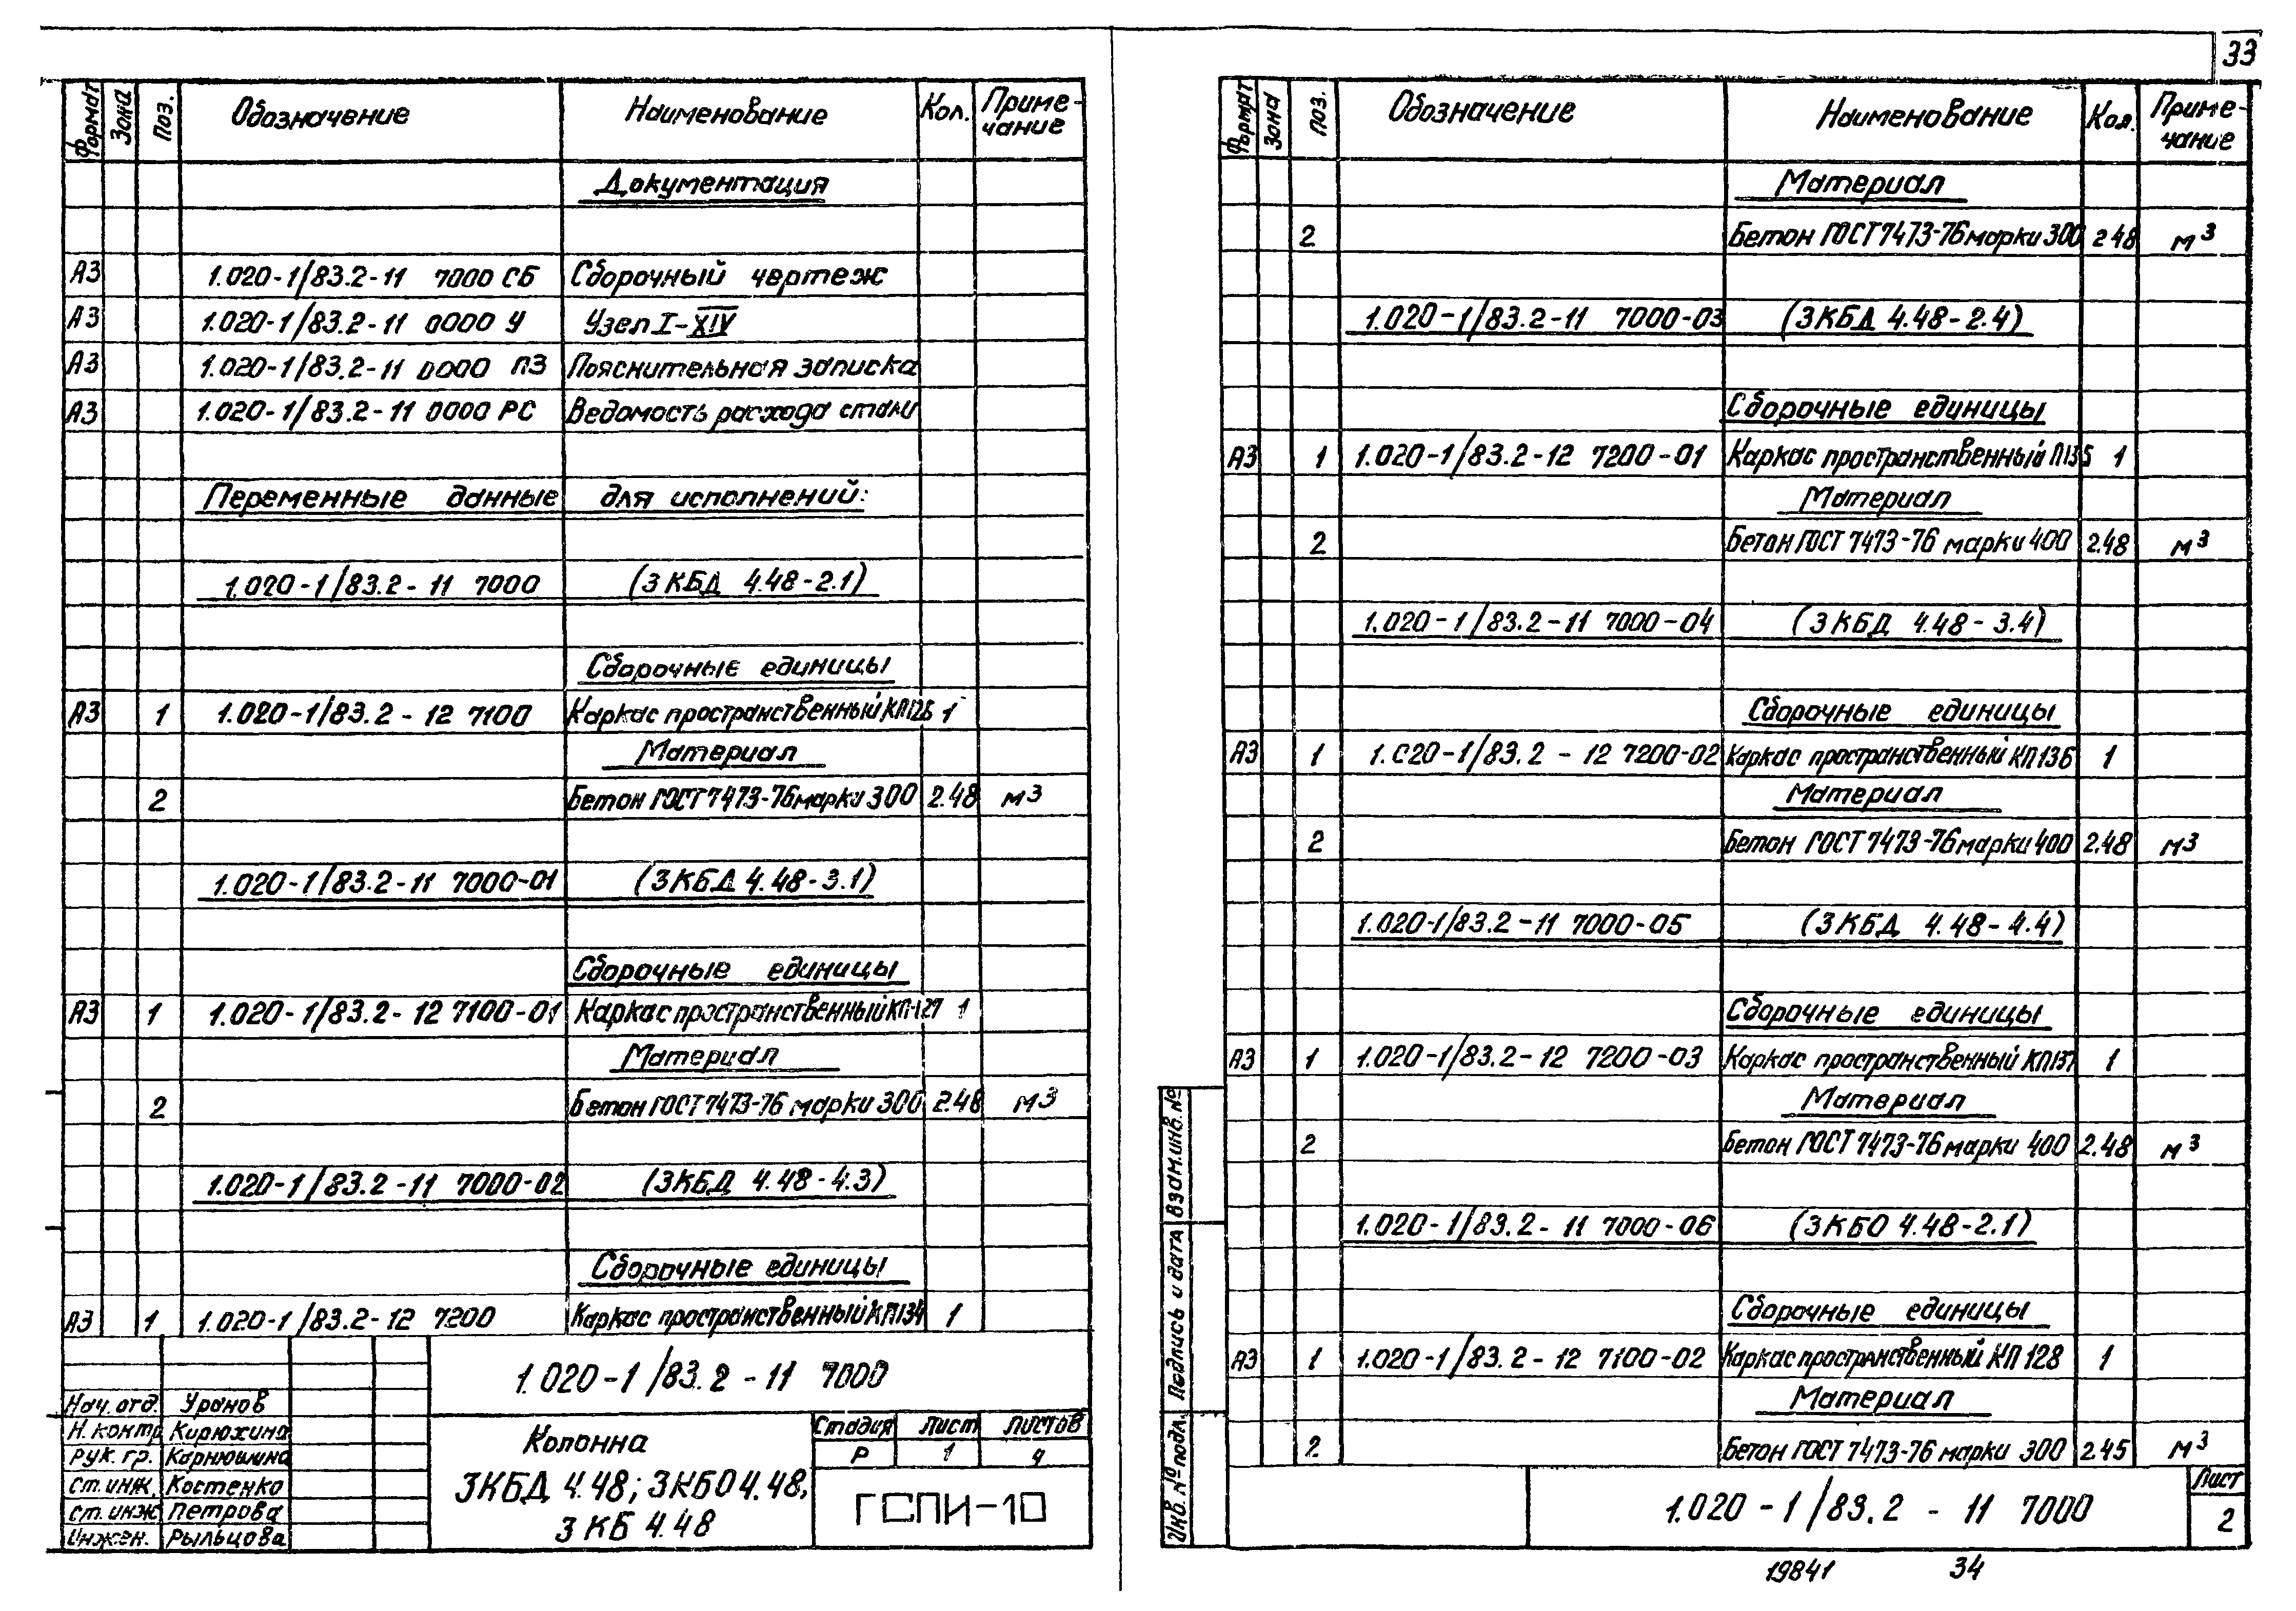 33
Формат Зона Поз. Обозначение Наименование Кол. Приме-чание
Документация
А3 1.020-1/83.2-11 7000 СБ Сборочный чертеж
А3 1.020-1/83.2-11 0000 У Узел I-XIV
А3 1.020-1/83.2-11 0000 ПЗ Пояснительная записка
А3 1.020-1/83.2-11 0000 РС Ведомость расхода стали
Переменные данные для исполнений:
1.020-1/83.2-11 7000 (3КБД 4.48-2.1)
Сборочные единицы
А3 1 1.020-1/83.2-12 7100 Каркас пространственный КП126 1
Материал
2 Бетон ГОСТ 7473-76 марки 300 2.48 м3
1.020-1/83.2-11 7000-01 (3КБД 4.48-3.1)
Сборочные единицы
А3 1 1.020-1/83.2-12 7100-01 Каркас пространственный КП-127 1
Материал
2 Бетон ГОСТ 7473-76 марки 300 2.48 м3
1.020-1/83.2-11 7000-02 (3КБД 4.48-4.3)
Сборочные единицы
А3 1 1.020-1/83.2-12 7200 Каркас пространственный КП134 1
1.020-1/83.2-11 7000
Нач. отд. Уранов
Н. контр Кирюхина
Рук. гр. Карнюшина
Ст. инж. Костенко
Ст. инж Петрова
Инжен. Рыльцова
Колонна
3КБД 4.48; 3КБО 4.48,
3КБ 4.48
Стадия Лист Листов
Р 1 4
ГСПИ-10
Формат Зона Поз. Обозначение Наименование Кол. Приме-чание
Материал
2 Бетон ГОСТ 7473-76 марки 300 2 48 м3
1.020-1/83.2-11 7000-03 (3КБД 4.48-2.4)
Сборочные единицы
А3 1 1.020-1/83.2-12 7200-01 Каркас пространственный П135 1
Материал
2 Бетон ГОСТ 7473-76 марки 400 2.48 м3
1.020-1/83.2-11 7000-04 (3КБД 4.48-3.4)
Сборочные единицы
А3 1 1.020-1/83.2-12 7200-02 Каркас пространственный КП136 1
Материал
2 Бетон ГОСТ 7473-76 марки 400 2.48 м3
1.020-1/83.2-11 7000-05 (3КБД 4.48-4.4)
Сборочные единицы
А3 1 1.020-1/83.2-12 7200-03 Каркас пространственный КП137 1
Материал
2 Бетон ГОСТ 7473-76 марки 400 2.48 м3
1.020-1/83.2-11 7000-06 (3КБО 4.48-2.1)
Сборочные единицы
А3 1 1.020-1/83.2-12 7100-02 Каркас пространственный КП 128 1
Материал
2 Бетон ГОСТ 7473-76 марки 300 2.45 м3
Инв. № подл. Подпись и дата Взам.инв.№
1.020-1/83.2-11 7000
Лист
2
19841 34